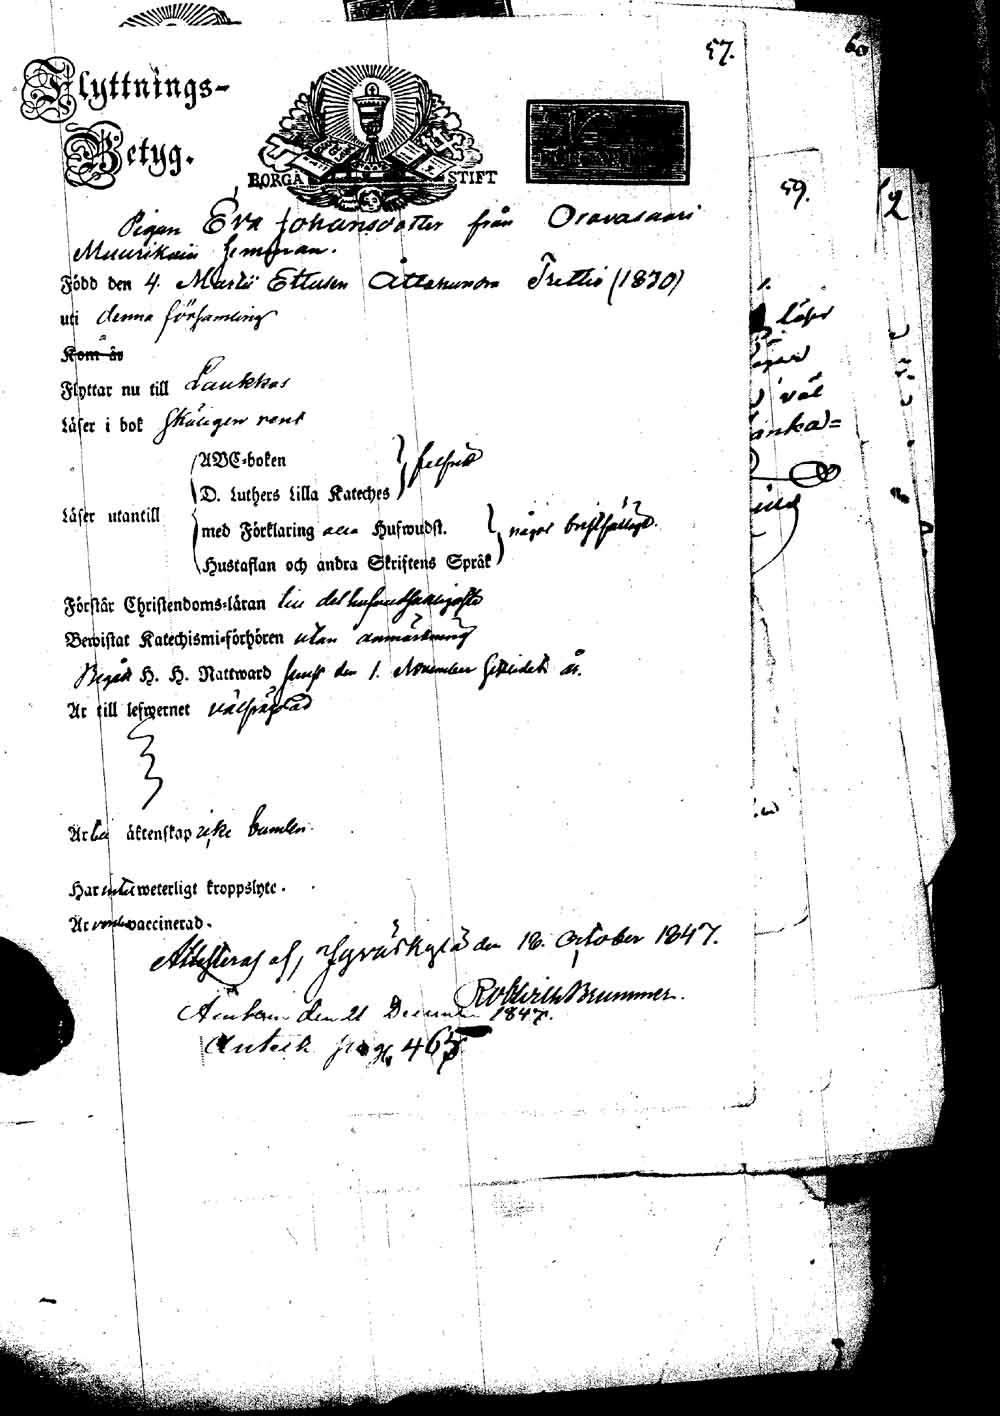 57.
60
Flyttnings-
Betyg.
BORGÅ STIFT
59.
62
Pigan Eva Johansdotter från Oravasaari
Muurikais hemman.
Född den 4. Martii Ettusen Åttahundra Trettio (1830)
uti denna församling
Kom år
Flyttar nu till Laukkas
Läser i bok skäligen rent
ABC-boken
D. Luthers Lilla Kateches
Läser utantill
med Förklaring alla Hufwudst. något bristfälligt.
Hustaflan och andra Skriftens Språk
Förstår Christendoms-läran till det hufvudsakligaste
Bewistat Katechismi-förhören utan anmärkning
Begått H. H. Nattward senast den 1. November sistledet år.
Är till lefwernet välfrägdad
Är till äktenskap icke bunden.
Har intet weterligt kroppslyte.
Är vaccinerad.
Attesteras af, Jyväskylä den 18. October 1847.
Rob. Brummer.
den 21 December 1847.
Anteck pag. 465
läser
väl